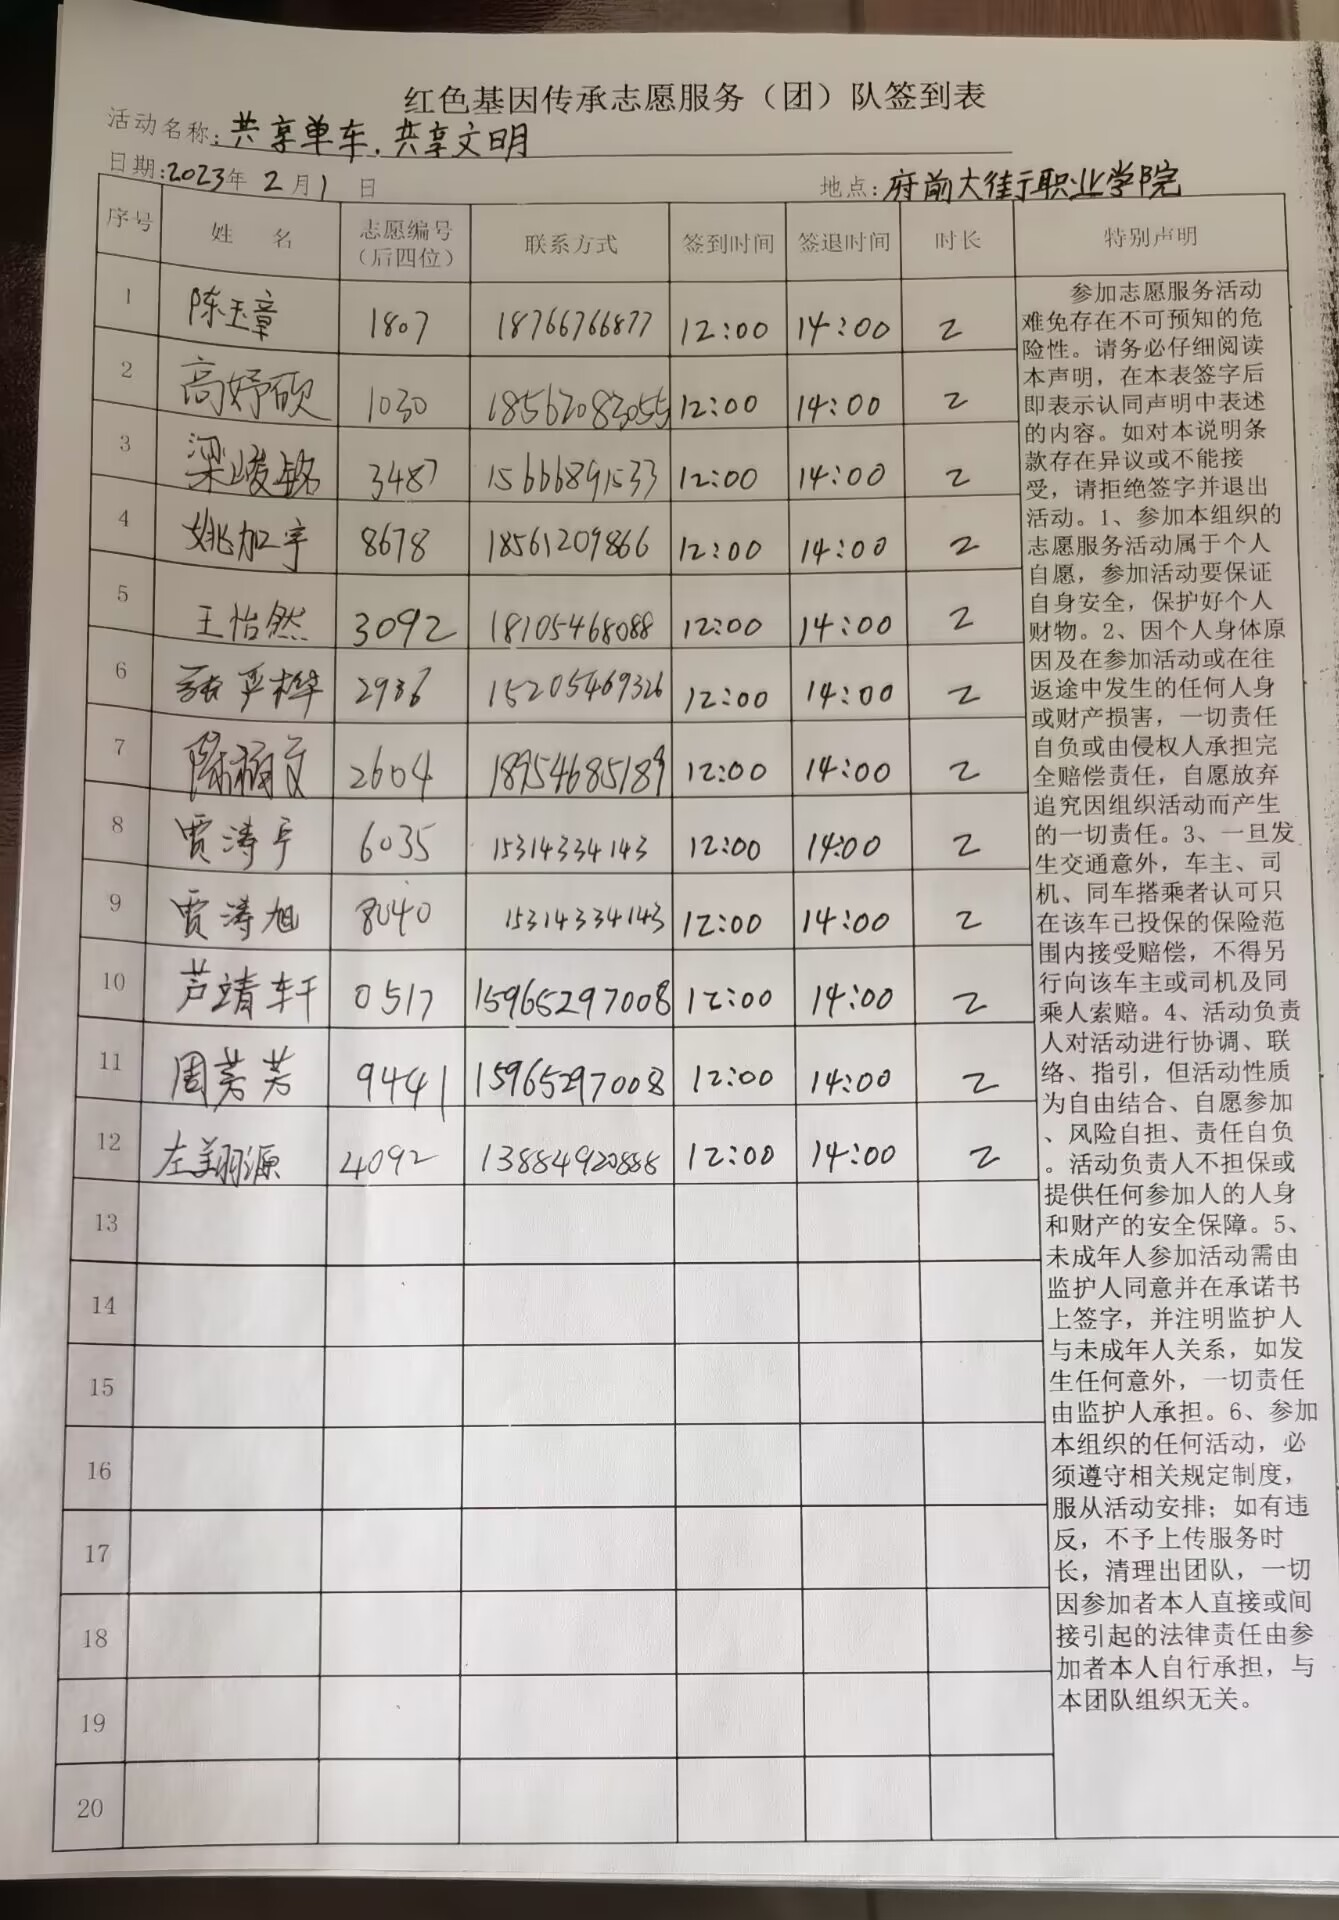 红色基因传承志愿服务（团）队签到表
活动名称:共享单车.共享文明
日期:2023年2月1日 地点:府前大街职业学院
序号 姓 名 志愿编号（后四位） 联系方式 签到时间 签退时间 时长 特别声明
1 陈玉章 1807 18766766877 12:00 14:00 2
2 高妤硕 1030 18562083055 12:00 14:00 2
3 梁峻铭 3487 15666891533 12:00 14:00 2
4 姚加宇 8678 18561209866 12:00 14:00 2
5 王怡然 3092 18105468088 12:00 14:00 2
6 张严桦 2936 15205469326 12:00 14:00 2
7 2604 18954685189 12:00 14:00 2
8 贾涛宇 6035 15314334143 12:00 14:00 2
9 贾涛旭 8040 15314334143 12:00 14:00 2
10 芦靖轩 0517 15965297008 12:00 14:00 2
11 周芳芳 9441 15965297008 12:00 14:00 2
12 左翔源 4092 13884920888 12:00 14:00 2
13
14
15
16
17
18
19
20
参加志愿服务活动
难免存在不可预知的危
险性。请务必仔细阅读
本声明，在本表签字后
即表示认同声明中表述
的内容。如对本说明条
款存在异议或不能接
受，请拒绝签字并退出
活动。1、参加本组织的
志愿服务活动属于个人
自愿，参加活动要保证
自身安全，保护好个人
财物。2、因个人身体原
因及在参加活动或在往
返途中发生的任何人身
或财产损害，一切责任
自负或由侵权人承担完
全赔偿责任，自愿放弃
追究因组织活动而产生
的一切责任。3、一旦发
生交通意外，车主、司
机、同车搭乘者认可只
在该车已投保的保险范
围内接受赔偿，不得另
行向该车主或司机及同
乘人索赔。4、活动负责
人对活动进行协调、联
络、指引，但活动性质
为自由结合、自愿参加
、风险自担、责任自负
。活动负责人不担保或
提供任何参加人的人身
和财产的安全保障。5、
未成年人参加活动需由
监护人同意并在承诺书
上签字，并注明监护人
与未成年人关系，如发
生任何意外，一切责任
由监护人承担。6、参加
本组织的任何活动，必
须遵守相关规定制度，
服从活动安排；如有违
反，不予上传服务时
长，清理出团队，一切
因参加者本人直接或间
接引起的法律责任由参
加者本人自行承担，与
本团队组织无关。